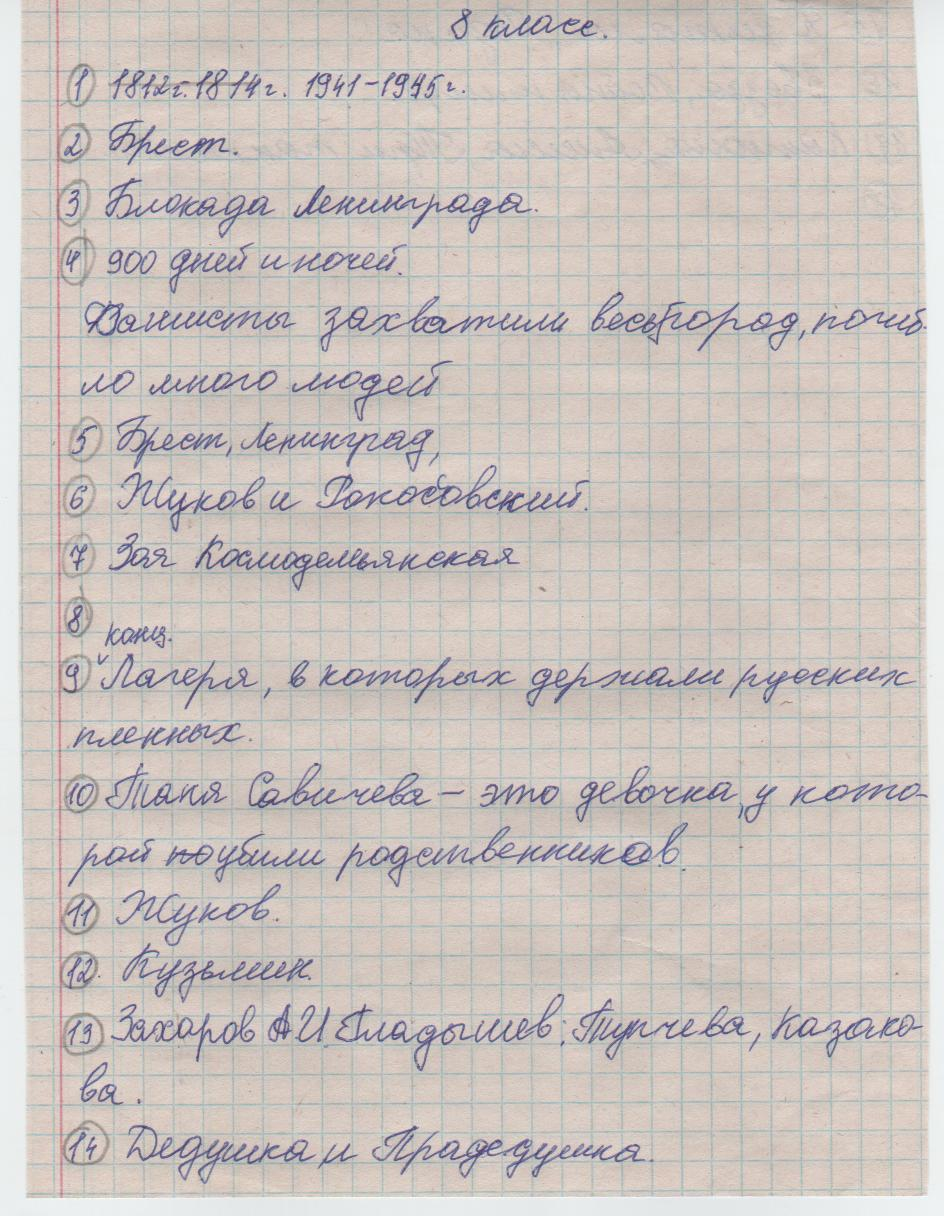 8 класс.
1 1812г.1814г. 1941-1945г.
2 Брест.
3 Блокада Ленинграда.
4 900 дней и ночей.
Фашисты захватили весь город, погиб-
ло много людей
5 Брест, Ленинград,
6 Жуков и Рокосовский.
7 Зоя Космодемьянская
8
конц.
9 Лагеря, в которых держали русских
пленных.
10 Таня Савичева – это девочка, у кото-
рой поубили родственников
11 Жуков.
12. Кузьмин.
13 Захаров А И. Гладышев, Тупчева, Казако-
ва.
14 Дедушка и Прадедушка.